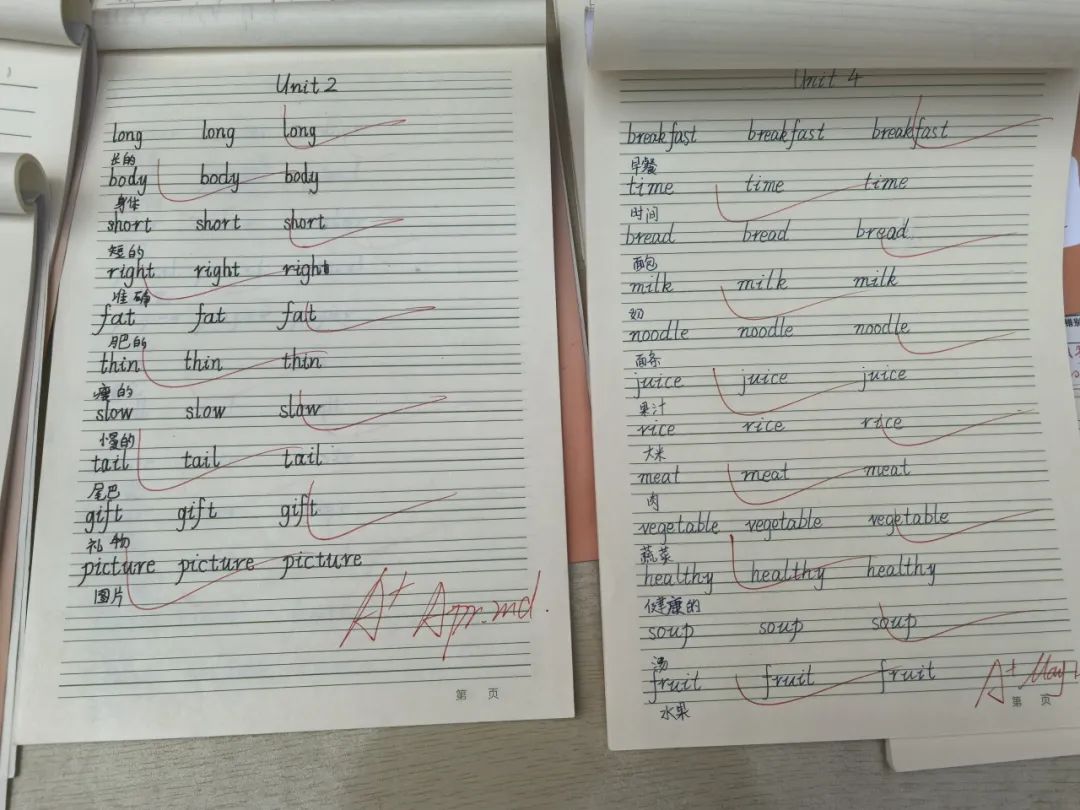 Unit 2
long long long
长的
body body body
身体
short short short
短的
right right right
准确
fat fat fat
肥的
thin thin thin
瘦的
slow slow slow
慢的
tail tail tail
尾巴
gift gift gift
礼物
picture picture picture
图片
A+
第 页
Unit 4
breakfast breakfast breakfast
早餐
time time time
时间
bread bread bread
面包
milk milk milk
奶
noodle noodle noodle
面条
juice juice juice
果汁
rice rice rice
大米
meat meat meat
肉
vegetable vegetable vegetable
蔬菜
healthy healthy healthy
健康的
soup soup soup
汤
fruit fruit fruit
水果
A+ May
第 页